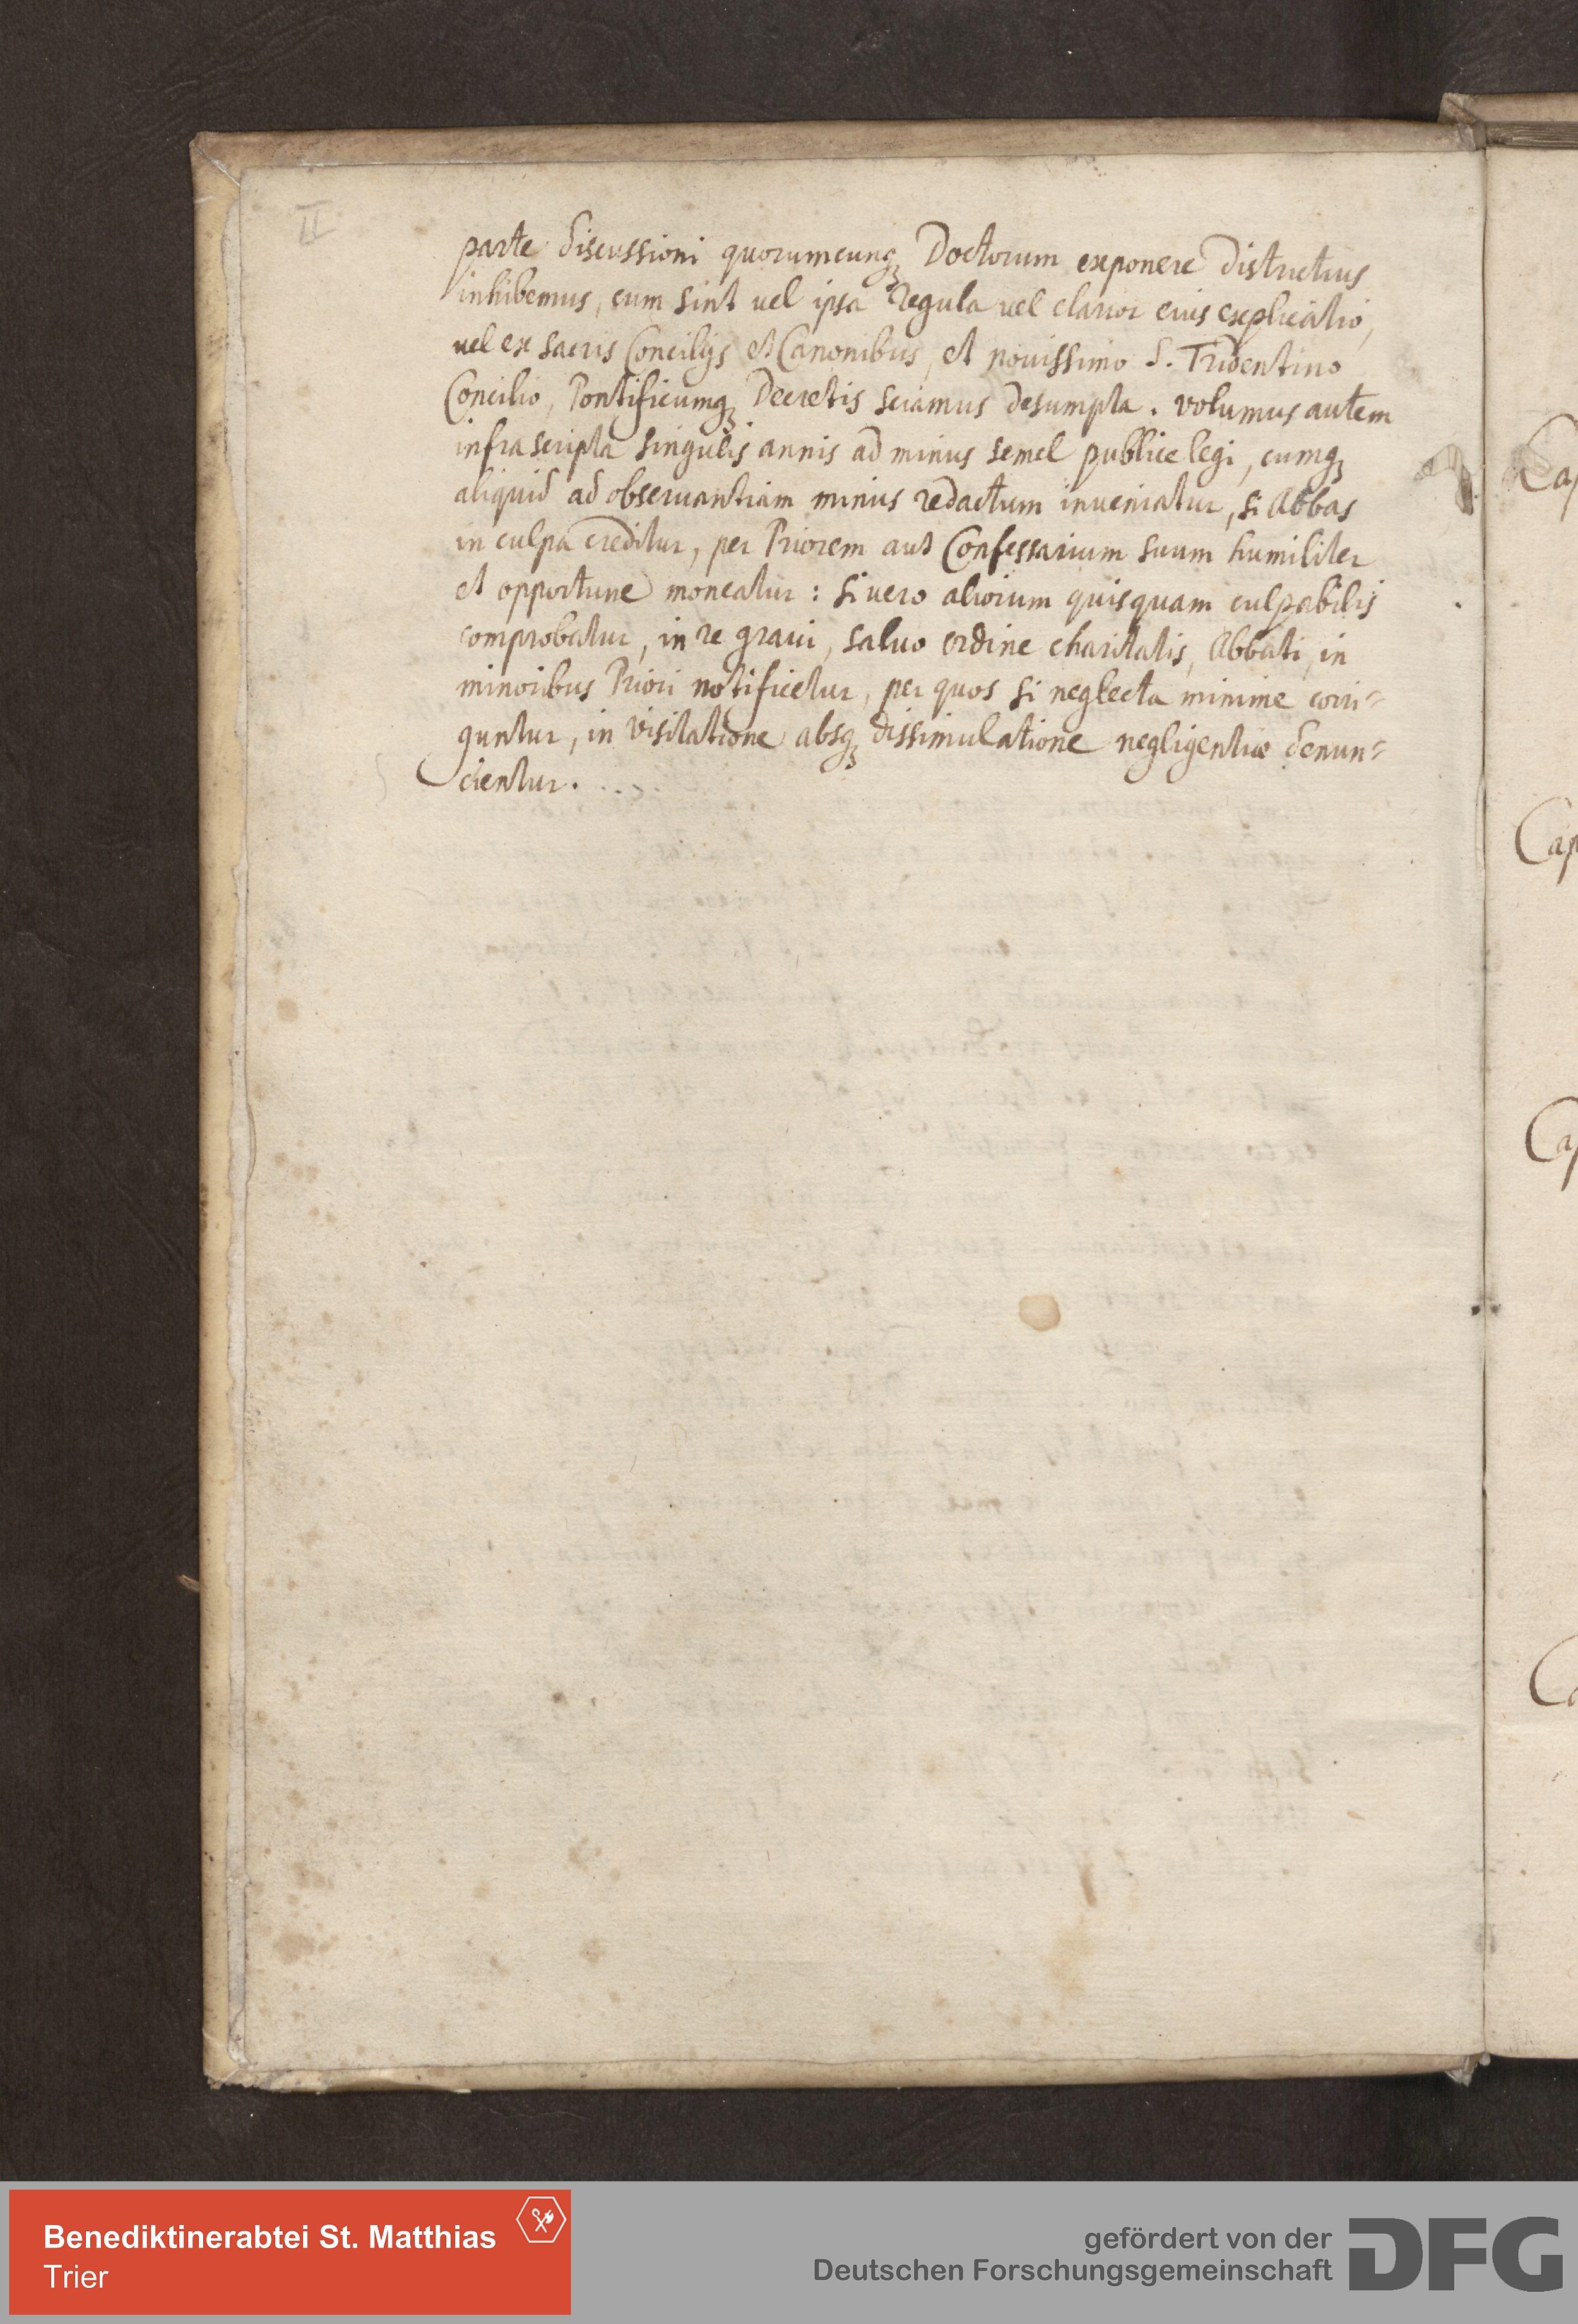 II
parte discussioni quorumcunq; Doctorum exponere districtius
inhibemus, cum sint vel ipsa Regula vel clarior eius explicatio,
vel ex sacris Concilijs et Canonibus, et novissimo S. Tridentino
Concilio, Pontificumq; Decretis sciamus desumpta. volumus autem
infrascripta singulis annis ad minus semel publice legi, cumq;
aliquid ad obseruantiam minus redactum inveniatur, si Abbas
in culpa creditur, per Priorem aut Confessarium suum humiliter
et opportune moneatur: si uero aliorum quisquam culpabilis
comprobatur, in re graui, saluo ordine charitatis, Abbati, in
minoribus Priori notificetur, per quos si neglecta minime corri=
guntur, in visitatione absq; dissimulatione negligentiæ denun=
cientur.
Cap
Cap
Ca
Benediktinerabtei St. Matthias
Trier
gefördert von der
Deutschen Forschungsgemeinschaft
DFG